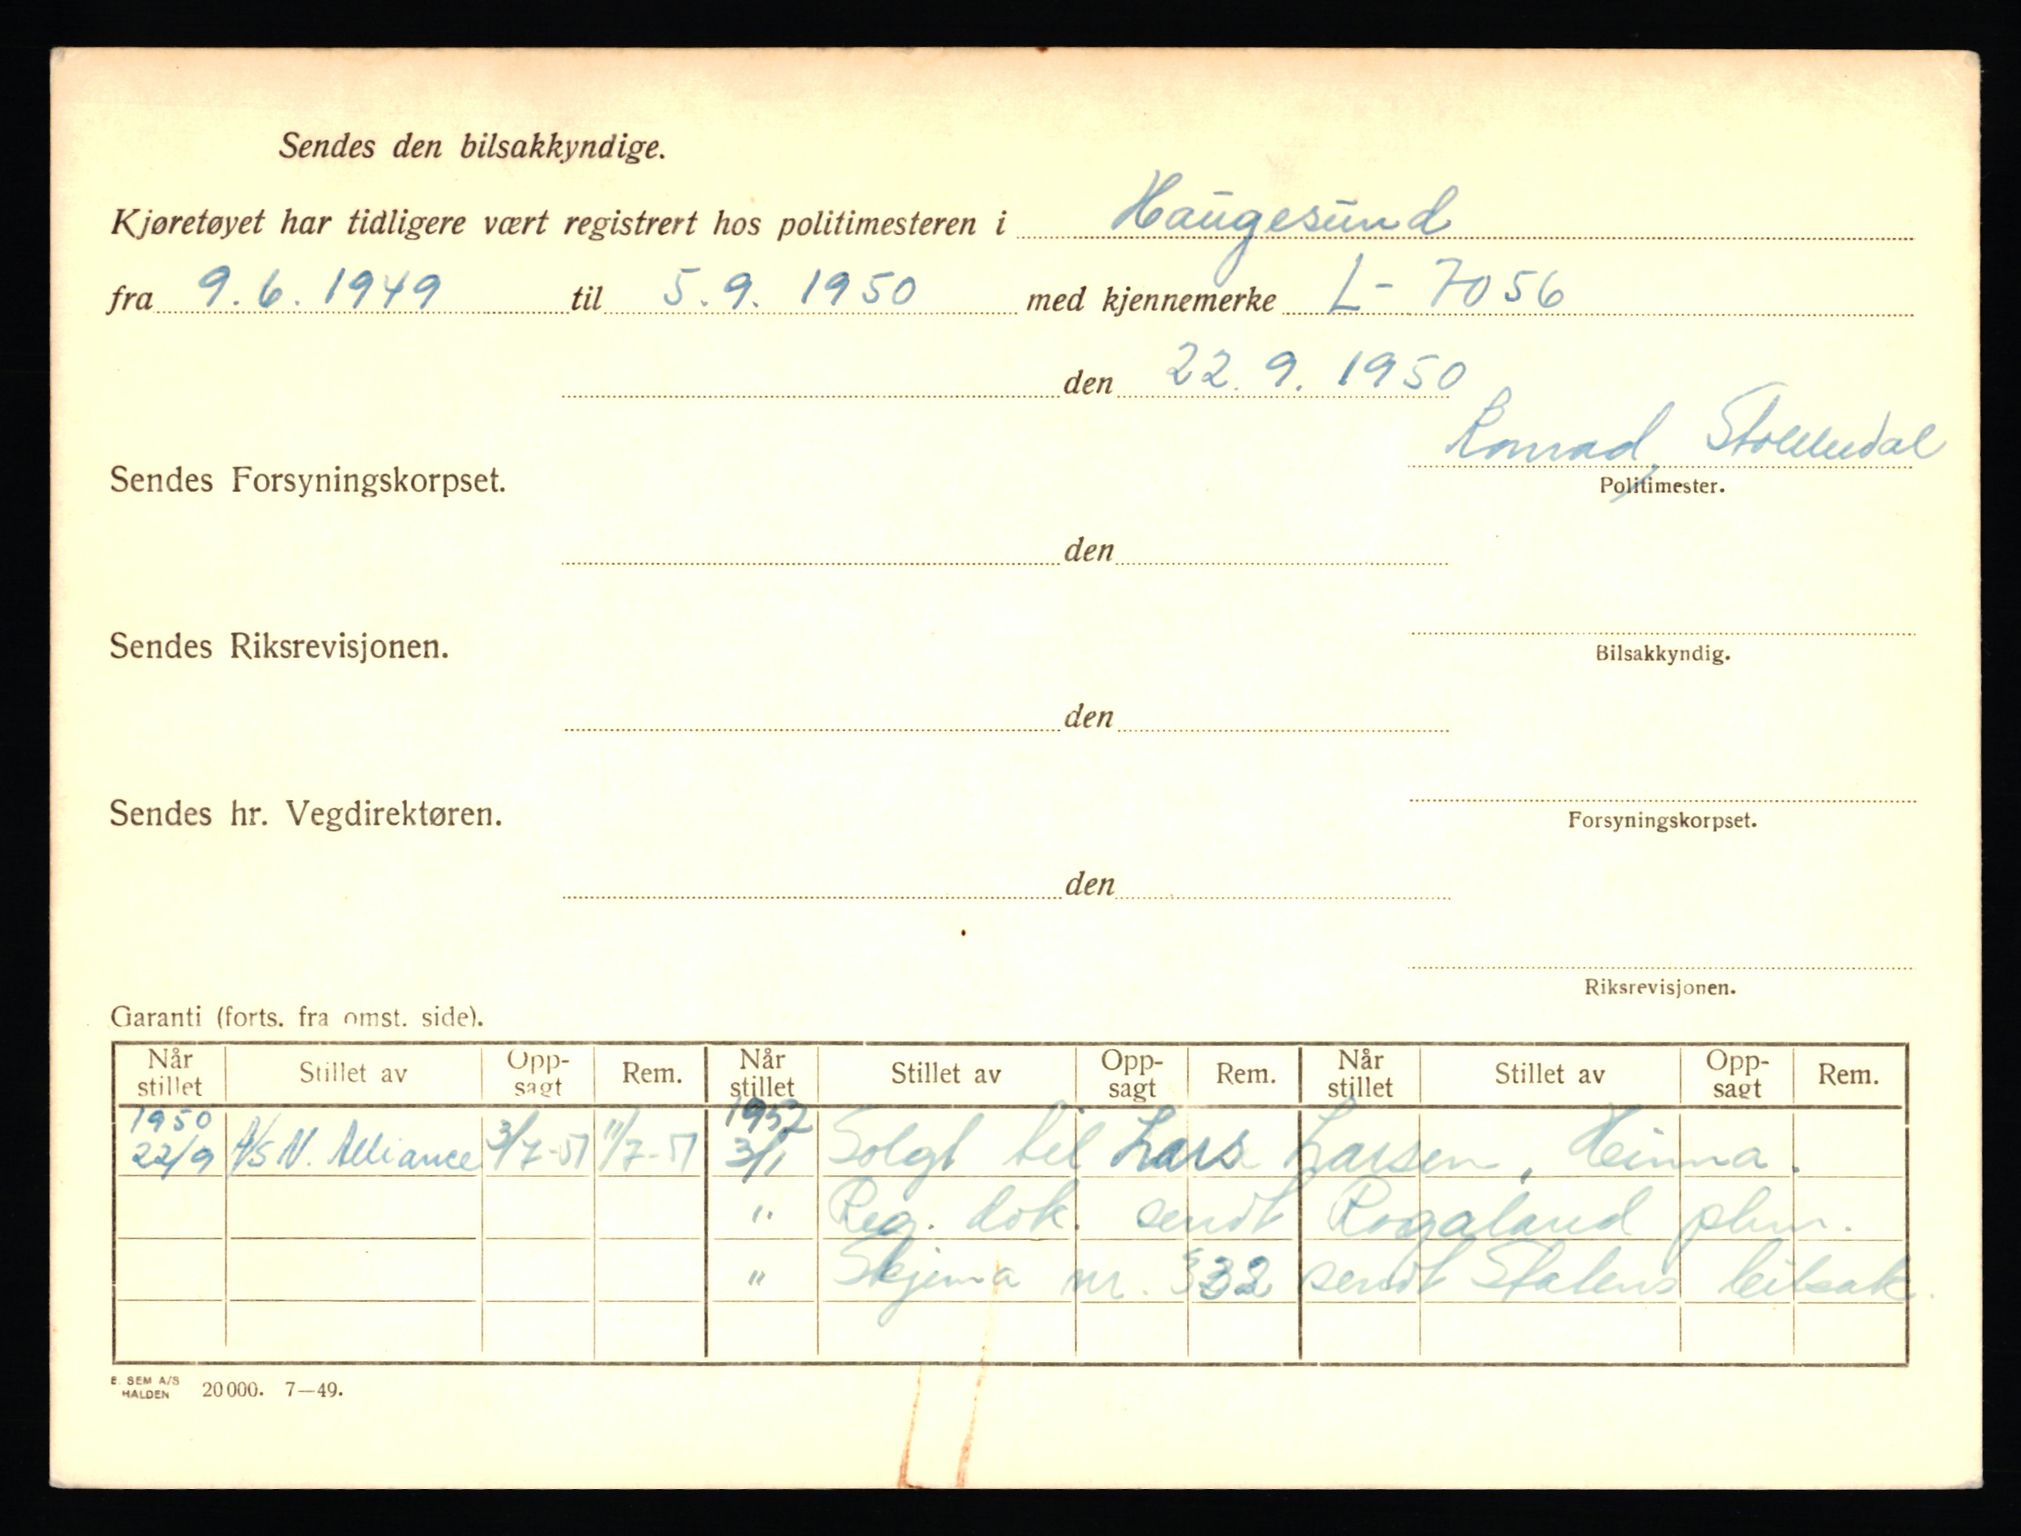 Sendes den bilsakkyndige.
Kjøretøyet har tidligere vært registrert hos politimesteren i Haugesund
fra 9.6.1949 til 5.9.1950 med kjennemerke L-7056
den 22.9.1950
Konrad
Sendes Forsyningskorpset.
Politimester.
den
Sendes Riksrevisjonen.
Bilsakkyndig.
den
Sendes hr. Vegdirektøren.
Forsyningskorpset.
den
Riksrevisjonen.
Garanti (forts. fra omst. side).
Når stillet Stillet av Opp-sagt Rem. Når stillet Stillet av Opp-sagt Rem. Når stillet Stillet av Opp-sagt Rem.
1950 1952
22/9 A/S N. Alliance 3/7-51 11/7-51 3/1 Solgt til Lars Larsen, Hinna.
" Reg. dok. sendt Rogaland pkm.
" Skjema nr. 332 sendt Statens bilsak.
E. SEM A/S
HALDEN 20000. 7—49.